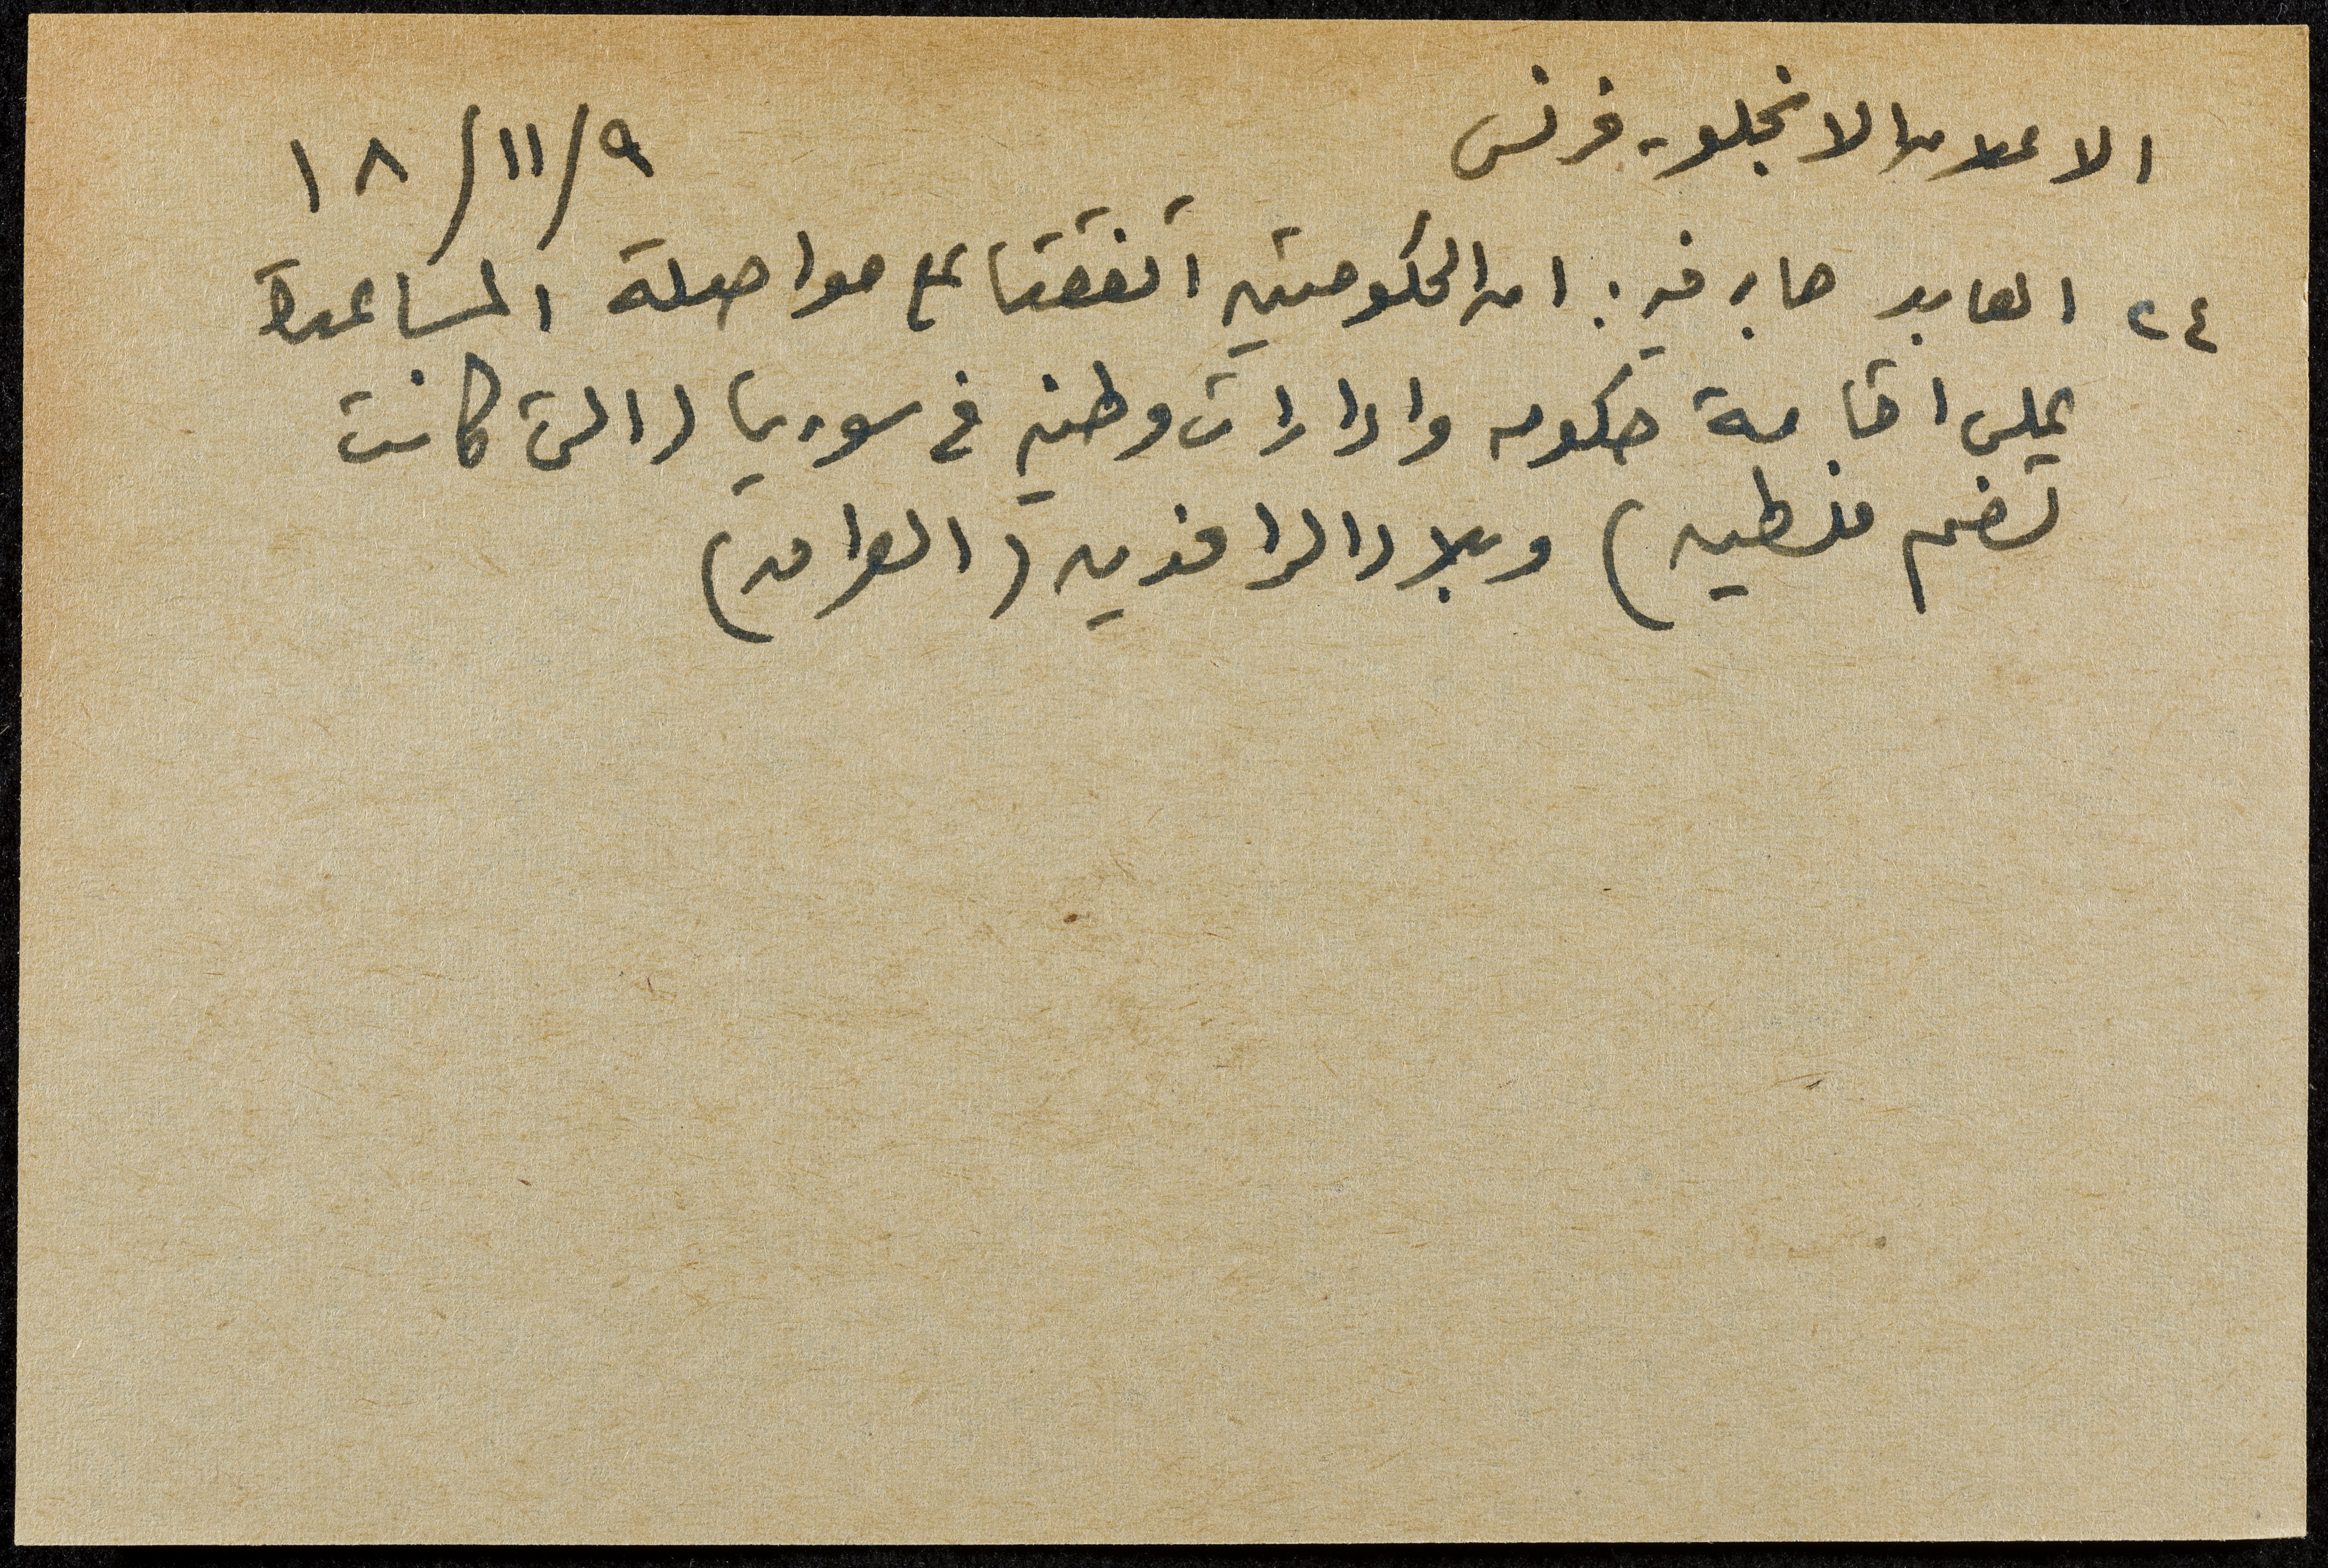 الاعلان الانجلو- فرنسي ٩/١١/١٨
٢٤ العابد جاء فيه: ان الحكومتين اتفقتا على مواصلة المساعدة
على اقامة حكومه وادارات وطنيه في سوريا (التي كانت
تضم فلسطين) وبلاد الرافدين (العراق)